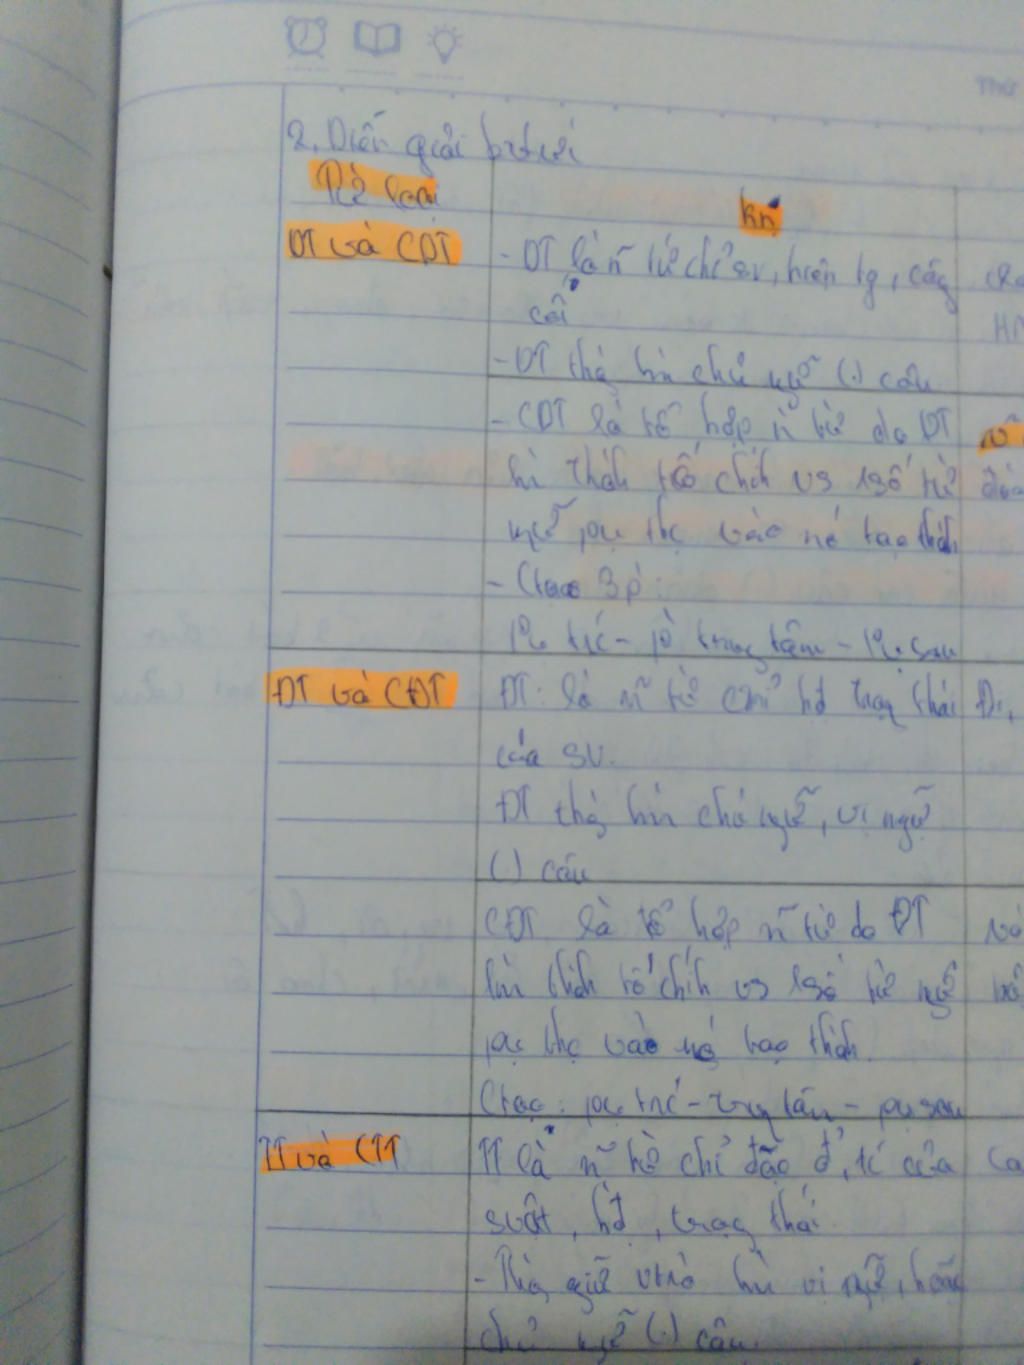 Thứ
2. Diễn giải
Từ loại
kn
DT và CDT
- DT là n~ từ chỉ sv, hiện tg, cây
cối
- DT thg làm chủ ngữ (.) câu
- CDT là tổ hợp n~ từ do DT
làm thành tố chính vs 1 số từ
ngữ pụ thc vào nó tạo thành
- Ctạo 3p:
Pụ trc - p trung tâm - Pụ sau
ĐT và CĐT
ĐT: là n~ từ chỉ hđ trạng thái
của SV.
ĐT thg làm chủ ngữ, vị ngữ
(.) câu
CĐT là tổ hợp n~ từ do ĐT
làm thành tố chính vs 1 số từ ngữ
pụ thc vào nó tạo thành.
Ctạo: pụ trc - trung tâm - pụ sau
TT và CTT
TT là n~ từ chỉ đặc đ', tc của
sv, hđ, trạng thái
- Thg giữ vtrò làm vị ngữ, hoặc
chủ ngữ (.) câu.